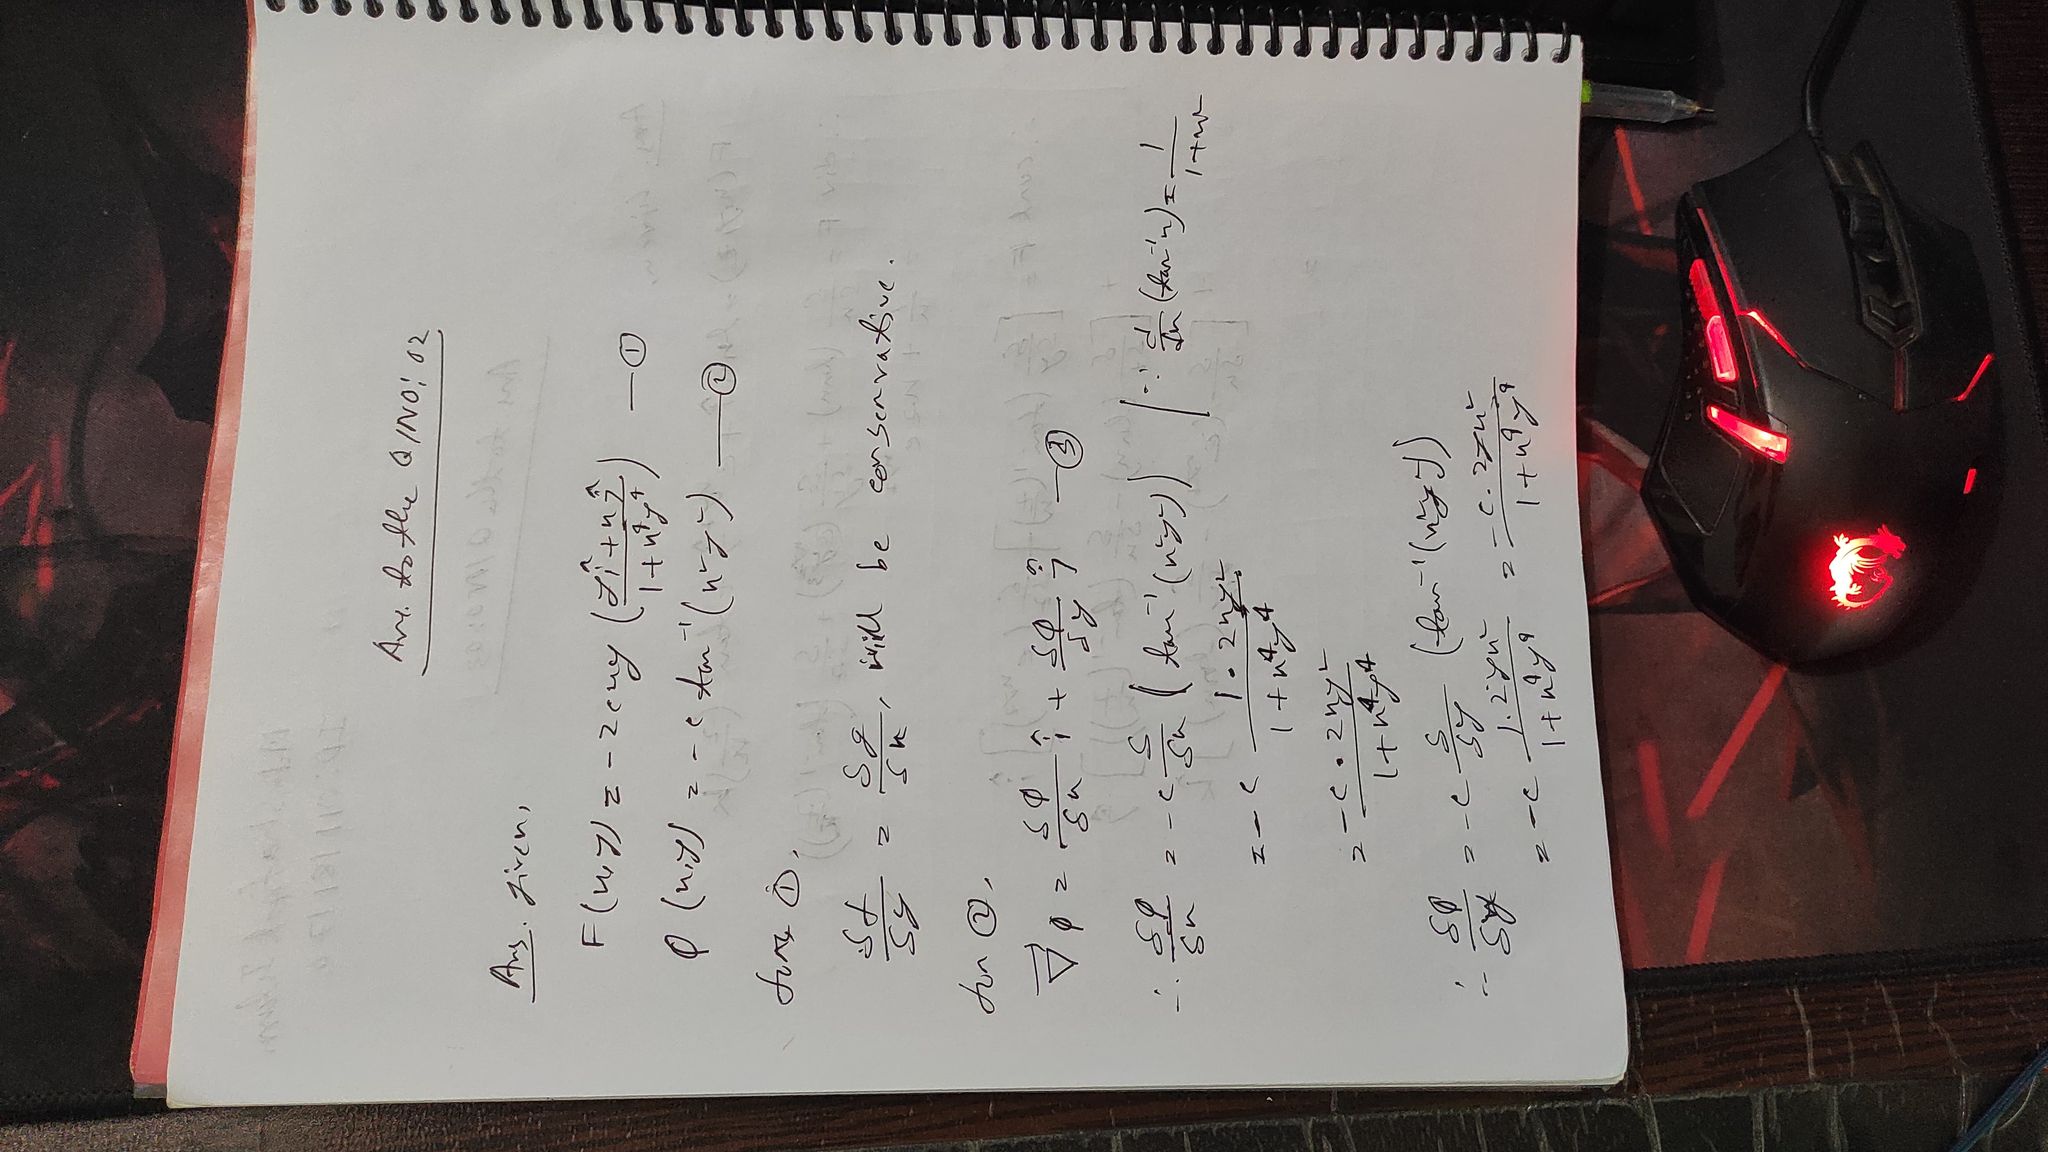 Ans. to the Q/NO: 02
Ans. given,
F(x,y) = -2cxy (yî + xĵ / 1 + x⁴y⁴) — ①
φ(x,y) = -c tan⁻¹(x²y²) — ②
for ①,
δf/δy = δg/δx, will be conservative.
for ②,
∇φ = δφ/δx î + δφ/δy ĵ — ③
∴ δφ/δx = -c δ/δx (tan⁻¹(x²y²)) | ∵ d/dx (tan⁻¹x) = 1/1+x²
= -c 1·2xy²/1+x⁴y⁴
= -c·2xy²/1+x⁴y⁴
∴ δφ/δy = -c δ/δy (tan⁻¹(x²y²))
= -c 1·2yx²/1+x⁴y⁴ = -c·2yx²/1+x⁴y⁴